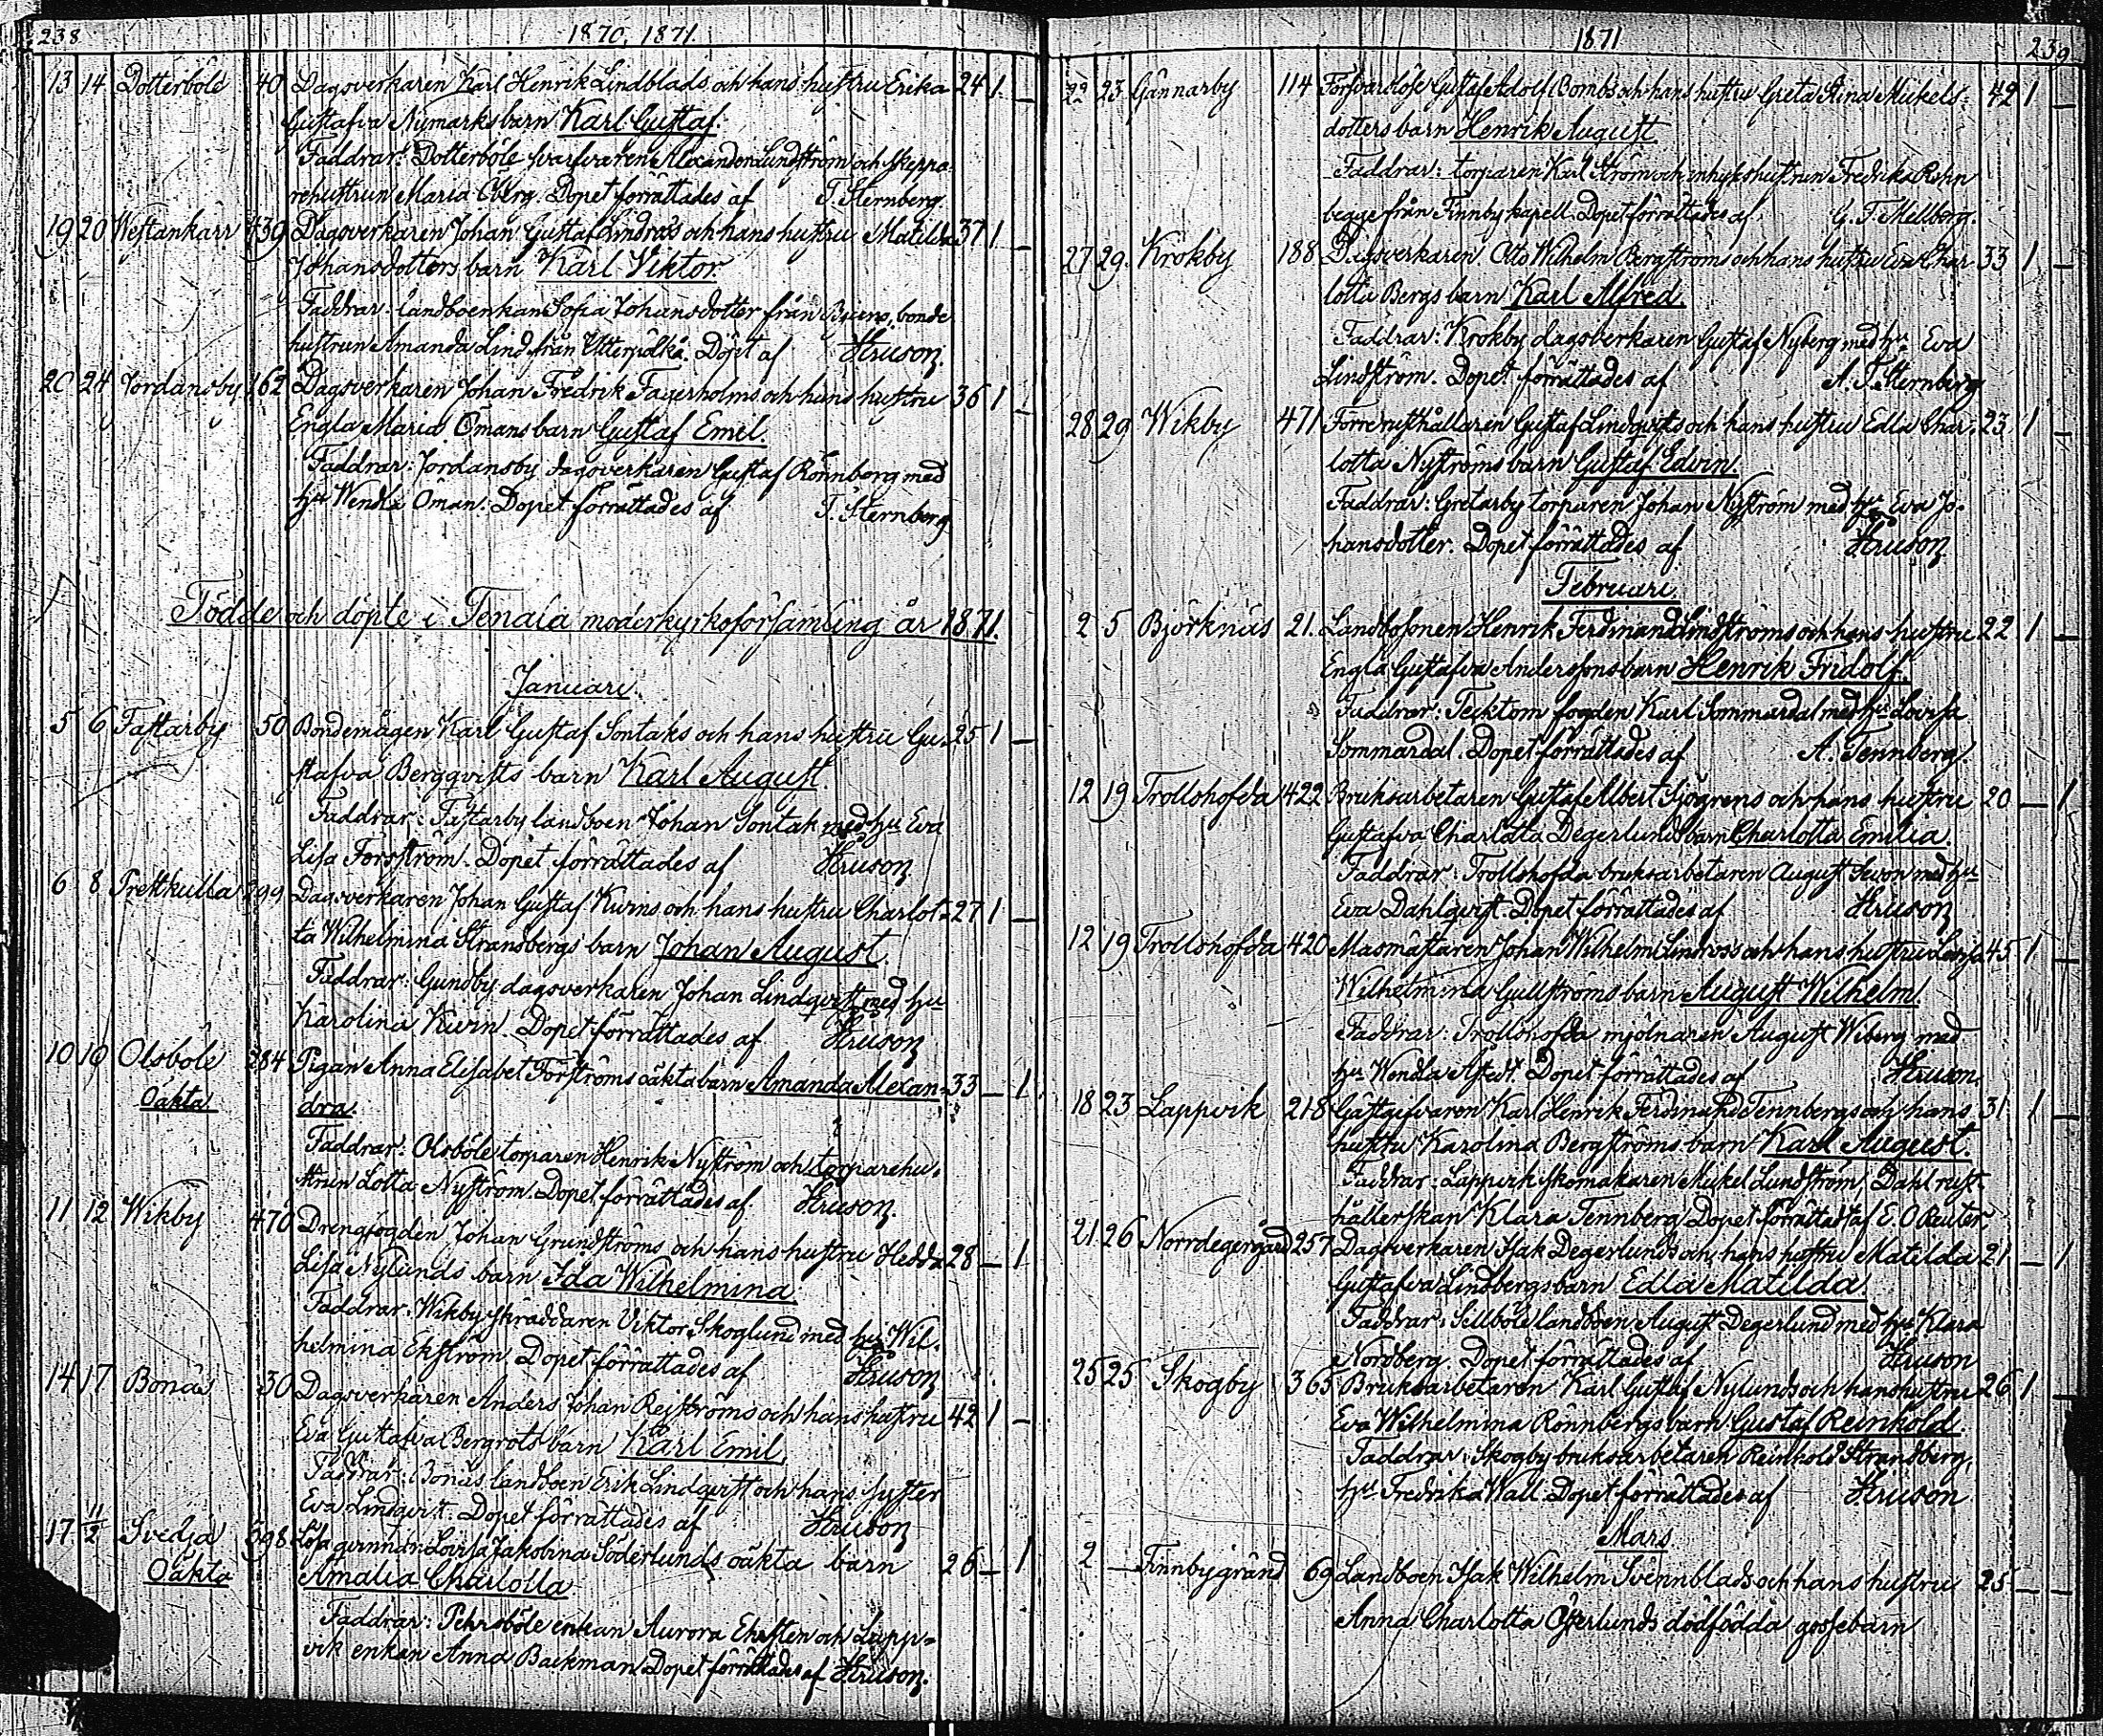 238
1870, 1871
13 14 Dotterböle 40 Dagsverkaren Karl Henrik Lindblads och hans hustru Erika 24 1 —
Gustafva Nymarks barn Karl Gustaf.
Faddrar: Dotterböle svarfvaren Alexander Lundström och skeppa-
rehustrun Maria Öberg. Dopet förrättades af T. Sternberg.
19 20 Westankärr 439 Dagsverkaren Johan Gustaf Lindroos och hans hustru Matilda 37 1 —
Johansdotters barn Karl Viktor
Faddrar: landboenkan Sofia Johansdotter från bonde
hustrun Amanda Lind från Döpt af Hruson.
20 24 Jordansby 162 Dagsverkaren Johan Fredrik Fagerholms och hans hustru 36 1 —
Engla Maria Ömans barn Gustaf Emil.
Faddrar: Jordansby dagsverkaren Gustaf Rönnberg med
hu Wendla Öman. Dopet förrättades af T. Sternberg
Födde och döpte i Tenala moderkyrkoförsamling år 1871.
Januari.
5 6 Fastarby 50 Bondemågen Karl Gustaf Sontaks och hans hustru Gu- 25 1 —
stafva Bergqvists barn Karl August.
Faddrar: Fastarby landboen Johan Sontak med hu Eva
Lisa Forsström. Dopet förrättades af Hruson
6 8 Prettkulla 299 Dagsverkaren Johan Gustaf Kurns och hans hustru Charlot- 27 1 —
ta Wilhelmina Stransbergs barn Johan August.
Faddrar: Gundby dagsverkaren Johan Lindqvist med hu
Karolina Kurn. Dopet förrättades af Hruson
10 10 Olsböle 284 Pigan Anna Elisabet Forströms oäkta barn Amanda Alexan- 33 — 1
Oäkta dra.
Faddrar: Olsböle torparen Henrik Nyström och torparehu-
strun Lotta Nyström. Dopet förrättades af Hruson.
11 12 Wikby 470 Drengfogden Johan Grundströms och hans hustru Hedda 28 — 1
Lisa Nylunds barn Ida Wilhelmina.
Faddrar: Wikby skräddaren Viktor Skoglund med hu Wil-
helmina Ekström. Dopet förrättades af Hruson
14 17 Bonäs 30 Dagsverkaren Anders Johan Rejströms och hans hustru 42 1 —
Eva Gustafva Bergrots barn Karl Emil,
Faddrar: Bonäs landboen Erik Lindqvist och hans syster
Eva Lindqvist. Dopet förrättades af Hruson
17 11/2 Svedja 398 Lösa qvinnan Lovisa Jakobina Söderlunds oäkta barn 26 — 1
Oäkta Amalia Charlotta
Faddrar: Pehrsböle enkan Aurora Eksten och Lapp-
vik enkan Anna Backman Dopet förrättades af Hruson.
1871
239
22 23 Gännarby 114 Försvarslöse Gustaf Adolf Bombs och hans hustru Greta Stina Mickels- 42 1 —
dotters barn Henrik August
Faddrar: torparen Karl Ström och inhyseshustrun Fredrika Rehn
begge från Finnby kapell. Dopet förrättades af G. F. Mellberg.
27 29. Krokby 188 Dagsverkaren Otto Wilhelm Bergströms och hans hustru Eva Char- 33 1 —
lotta Bergs barn Karl Alfred.
Faddrar: Krokby dagsverkaren Gustaf Nyberg med hu Eva
Lindström. Dopet förrättades af A. T. Sternberg
28 29 Wikby 471 Förre rusthållaren Gustaf Lindqvists och hans hustru Edla Char- 23 1 —
lotta Nyströms barn Gustaf Edvin.
Faddrar: Gretarby torparen Johan Nyström med hu Eva Jo-
hansdotter. Dopet förrättades af Hruson
Februari.
2 5 Björknäs 21. Landbosonen Henrik Ferdinand Lindströms och hans hustru 22 1 —
Engla Gustafva Anderssons barn Henrik Fridolf.
Faddrar: Tecktom fogden Karl Sommardal med hu Lovisa
Sommardal. Dopet förrättades af A. Tennberg.
12 19 Trollshofda 422 Bruksarbetaren Gustaf Albert Sjögrens och hans hustru 20 — 1
Gustafva Charlotta Degerlunds barn Charlotta Emilia.
Faddrar: Trollshofda bruksarbetaren August Sevon med hu
Eva Dahlqvist. Dopet förrättades af Hruson
12 19 Trollshofda 420 Masmästaren Johan Wilhelm Lindroos och hans hustru Lovisa 45 1 —
Wilhelmina Gullströms barn August Wilhelm.
Faddrar: Trollshofda mjölnaren August Wiberg med
hu Wendla Dopet förrättades af Hruson.
18 23 Lappvik 218 Gästgifvaren Karl Henrik Ferdinand Tennbergs och hans 31 1 —
hustru Karolina Bergströms barn Karl August.
Faddrar: Lappvik skomakaren Mickel Lundström, Dahl rust-
hållerskan Klara Tennberg Dopet förrättadt af E. O Reuter.
21 26 Norrdegergård 257 Dagsverkaren Isak Degerlunds och hans hustru Matilda 21 — 1
Gustafva Lindbergs barn Edla Matilda.
Faddrar: Sillböle landboen August Degerlund med hu Klara
Nordberg. Dopet förrättades af Hruson
25 25 Skogby 365 Bruksarbetaren Karl Gustaf Nylunds och hans hustru 26 1 —
Eva Wilhelmina Rönnbergs barn Gustaf Reinhold.
Faddrar: Skogby bruksarbetaren Reinhold Strandberg,
hu Fredrika Wall. Dopet förrättades af Hruson
Mars
2 — Finnbygränd 69 Landboen Isak Wilhelm Svennblads och hans hustru 25 — —
Anna Charlotta Österlunds dödfödda gossebarn